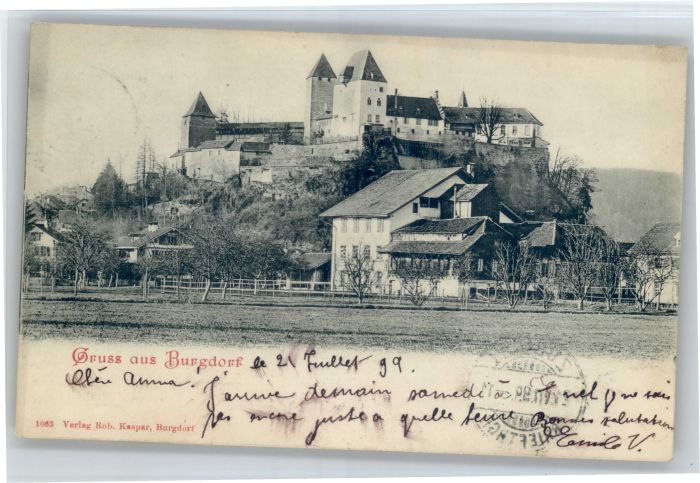 Gruss aus Burgdorf le 21 Juillet 99
Chère Anna. J'arrive demain samedi à
pas encore juste a quelle heure Bonnes salutations
Camille V.
1063 Verlag Rob. Kaspar, Burgdorf